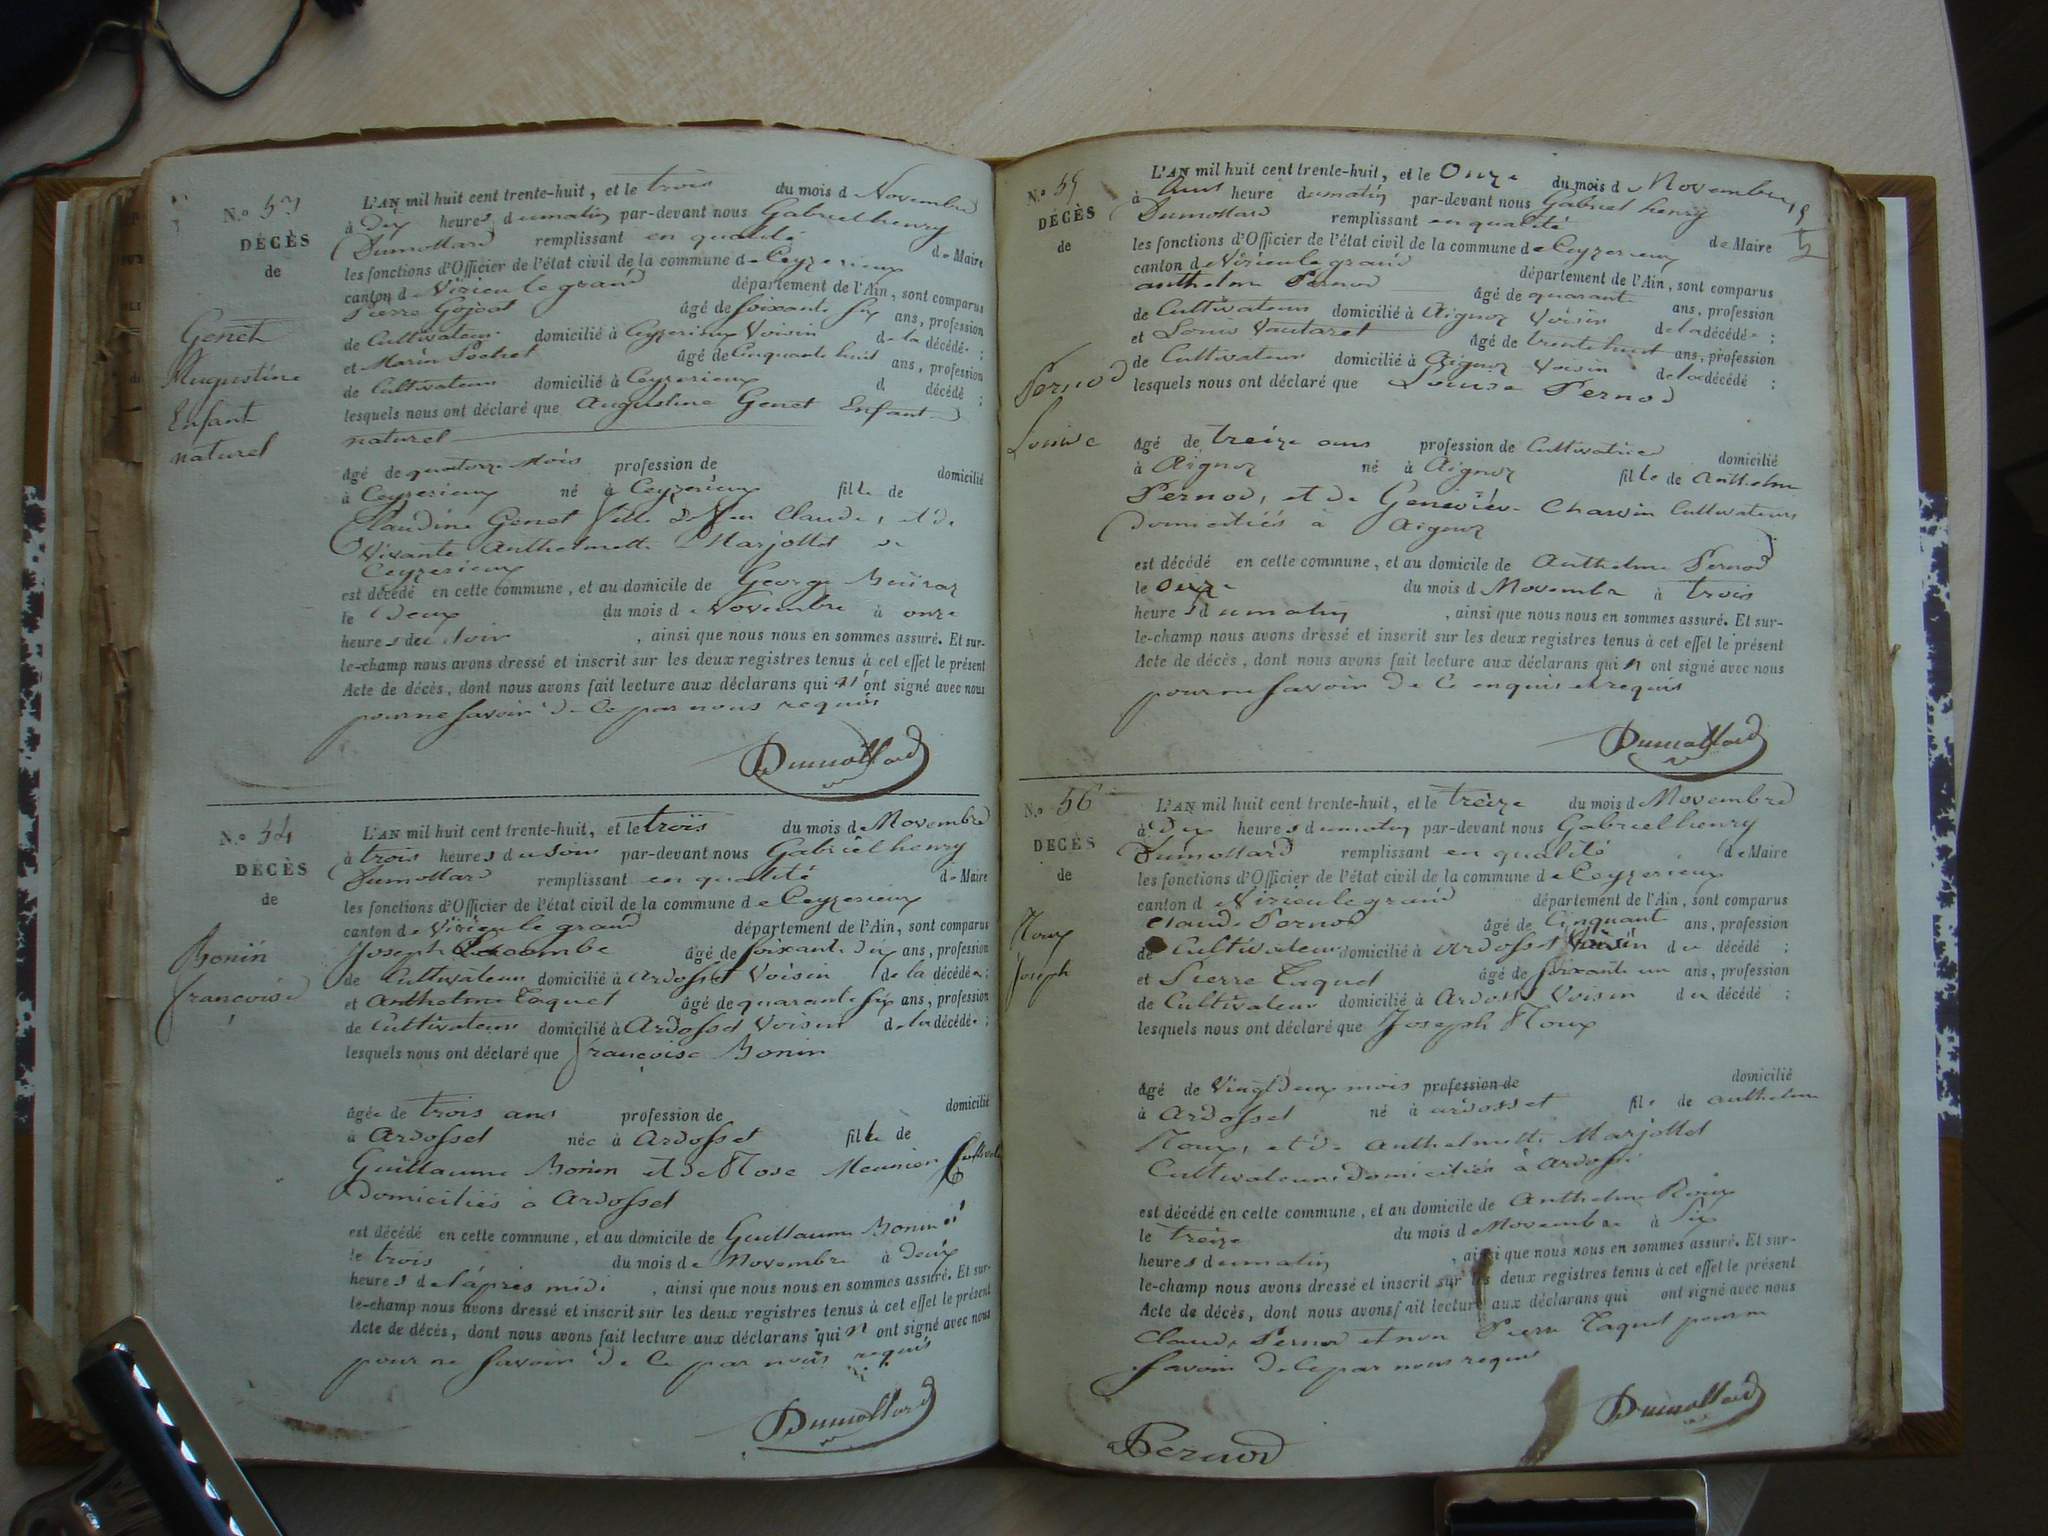 N.o 53
DÉCÈS
de
Genet
Augustine
Enfant
naturel
L'AN mil huit cent trente-huit, et le trois du mois de Novembre
à Dix heures du matin par-devant nous Gabriel henry
Dumollard remplissant en qualité de Maire
les fonctions d'Officier de l'état civil de la commune de Ceyzerieux
canton de Virieu le grand département de l'Ain, sont comparus
Pierre Gojoat âgé de soixante six ans, profession
de Cultivateur domicilié à Ceyzerieux Voisin de la décédée ;
et Marin Pochet âgé de Cinquante huit ans, profession
de Cultivateur domicilié à Ceyzerieux d décédé ;
lesquels nous ont déclaré que Augustine Genet Enfant
naturel
âgé de quatorze Mois profession de domicilié
à Ceyzerieux né à Ceyzerieux fille de
Claudine Genet fille de feu Claude, et de
Vivante Anthelmette Marjollet de
Ceyzerieux
est décédé en cette commune, et au domicile de George
le Deux du mois de Novembre à onze
heures du soir , ainsi que nous nous en sommes assuré. Et sur-
le-champ nous avons dressé et inscrit sur les deux registres tenus à cet effet le présent
Acte de décès, dont nous avons fait lecture aux déclarans qui n'ont signé avec nous
pour ne savoir de ce par nous requis
Dumollard
N.o 54
DÉCÈS
de
Bonin
françoise
L'AN mil huit cent trente-huit, et le trois du mois de Novembre
à trois heures du soir par-devant nous Gabriel henry
Dumollard remplissant en qualité de Maire
les fonctions d'Officier de l'état civil de la commune de Ceyzerieux
canton de Virieu le grand département de l'Ain, sont comparus
Joseph Lacombe âgé de soixante dix ans, profession
de Cultivateur domicilié à Ardosset Voisin de la décédée ;
et Anthelme Taquet âgé de quarante six ans, profession
de Cultivateur domicilié à Ardosset Voisin de la décédée ;
lesquels nous ont déclaré que françoise Bonin
âgée de trois ans profession de domicilié
à Ardosset née à Ardosset fille de
Guillaume Bonin et de Rose Meunier
Domiciliés à Ardosset
est décédé en cette commune, et au domicile de Guillaume Bonin
le trois du mois de Novembre à deux
heures de l'après midi , ainsi que nous nous en sommes assuré. Et sur-
le-champ nous avons dressé et inscrit sur les deux registres tenus à cet effet le présent
Acte de décès, dont nous avons fait lecture aux déclarans qui n'ont signé avec nous
pour ne savoir de ce par nous requis
Dumollard
N.o 55
DÉCÈS
de
Pernod
Louise
L'AN mil huit cent trente-huit, et le Onze du mois de Novembre
à heure du matin par-devant nous Gabriel henry
Dumollard remplissant en qualité de Maire
les fonctions d'Officier de l'état civil de la commune de Ceyzerieux
canton de Virieu le grand département de l'Ain, sont comparus
anthelme Pernod âgé de quarante ans, profession
de Cultivateur domicilié à Aignoz Voisin de la décédée ;
et Louis Vautaret âgé de trente huit ans, profession
de Cultivateur domicilié à Aignoz Voisin de la décédé ;
lesquels nous ont déclaré que Louise Pernod
âgé de treize ans profession de Cultivatrice domicilié
à Aignoz né à Aignoz fille de Anthelme
Pernod, et de Geneviève Charvin Cultivateurs
Domiciliés à Aignoz
est décédé en cette commune, et au domicile de Anthelme Pernod
le onze du mois de Novembre à trois
heures du matin , ainsi que nous nous en sommes assuré. Et sur-
le-champ nous avons dressé et inscrit sur les deux registres tenus à cet effet le présent
Acte de décès, dont nous avons fait lecture aux déclarans qui n'ont signé avec nous
pour ne savoir de ce enquis et requis
Dumollard
N.o 56
DÉCÈS
de
Roux
Joseph
L'AN mil huit cent trente-huit, et le treize du mois de Novembre
à Dix heures du matin par-devant nous Gabriel henry
Dumollard remplissant en qualité de Maire
les fonctions d'Officier de l'état civil de la commune de Ceyzerieux
canton de Virieu le grand département de l'Ain, sont comparus
Claude Pernod âgé de Cinquante ans, profession
de Cultivateur domicilié à Ardosset Voisin du décédé ;
et Pierre Taquet âgé de soixante un ans, profession
de Cultivateur domicilié à Ardosset Voisin du décédé ;
lesquels nous ont déclaré que Joseph Roux
âgé de Vingt Deux mois profession de domicilié
à Ardosset né à ardosset fils de anthelme
Roux, et de Anthelmette Marjollet
Cultivateurs domiciliés à Ardosset
est décédé en cette commune, et au domicile de Anthelme Roux
le treize du mois de Novembre à six
heures du matin , ainsi que nous nous en sommes assuré. Et sur-
le-champ nous avons dressé et inscrit sur les deux registres tenus à cet effet le présent
Acte de décès, dont nous avons fait lecture aux déclarans qui ont signé avec nous
Claude Pernod et non Pierre Taquet pour ne
savoir de ce par nous requis
Dumollard
Pernod